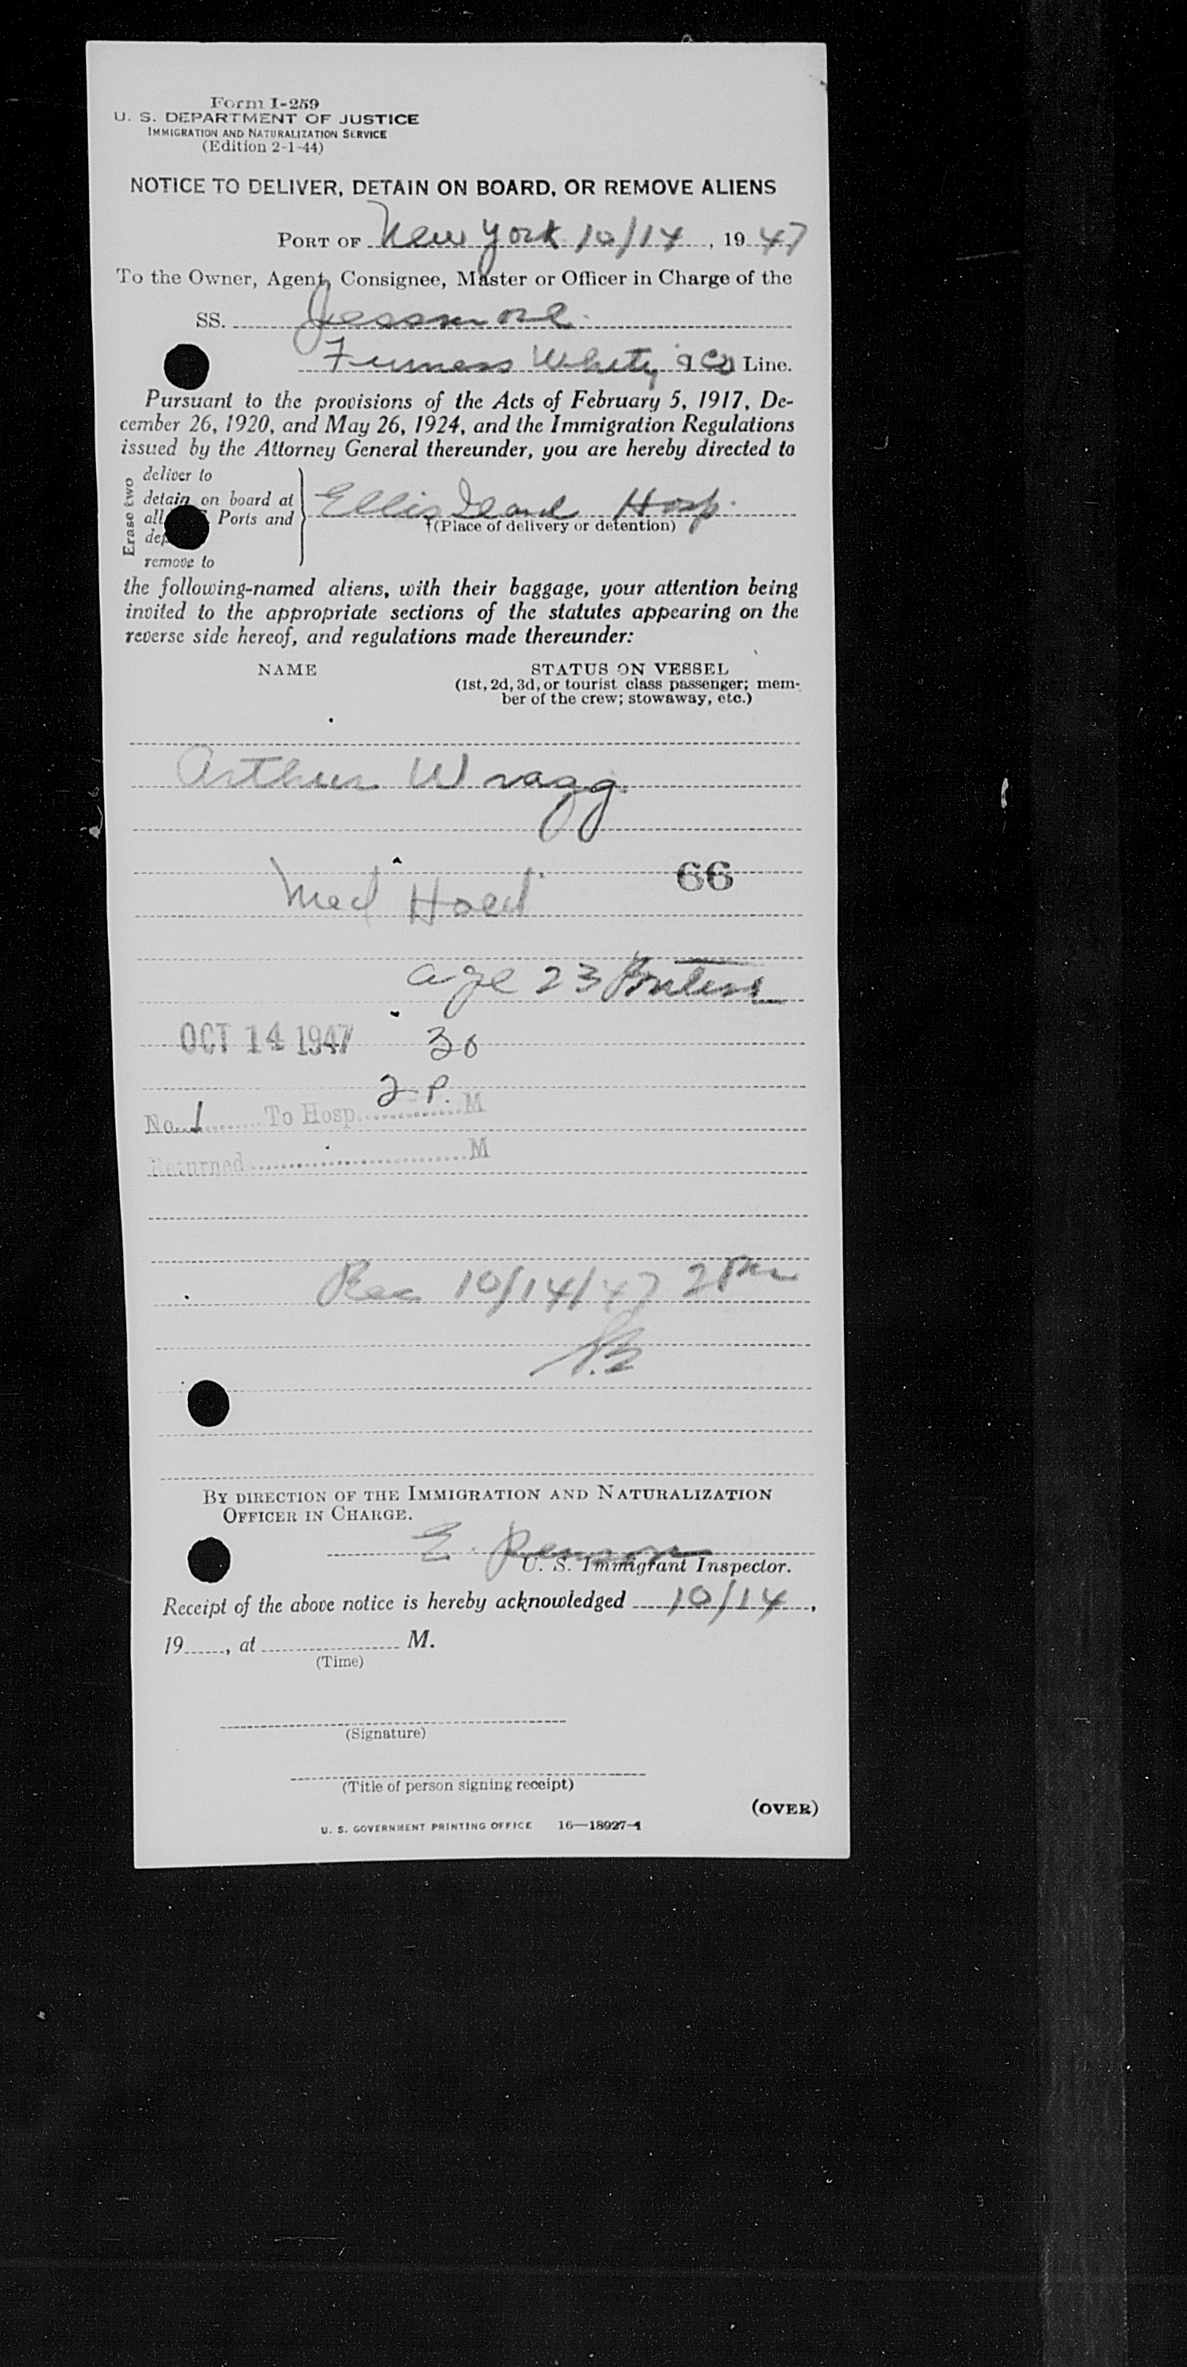 Form I-259
U. S. DEPARTMENT OF JUSTICE
IMMIGRATION AND NATURALIZATION SERVICE
(Edition 2-1-44)
NOTICE TO DELIVER, DETAIN ON BOARD, OR REMOVE ALIENS
PORT OF New York 10/14, 1947
To the Owner, Agent, Consignee, Master or Officer in Charge of the
SS. Jessmore
Furness Whity & Co Line.
Pursuant to the provisions of the Acts of February 5, 1917, De-
cember 26, 1920, and May 26, 1924, and the Immigration Regulations
issued by the Attorney General thereunder, you are hereby directed to
Erase two
deliver to
detain on board at
all Ports and
remove to
Ellis Island Hosp.
†(Place of delivery or detention)
the following-named aliens, with their baggage, your attention being
invited to the appropriate sections of the statutes appearing on the
reverse side hereof, and regulations made thereunder:
NAME STATUS ON VESSEL
(1st, 2d, 3d, or tourist class passenger; mem-
ber of the crew; stowaway, etc.)
Arthur Wragg
66
Med Hold
age 23
OCT 14 1947 30
2 P.
No. 1 To Hosp. M
Returned M
Rec 10/14/47 2 Pm
By direction of the Immigration and Naturalization
Officer in Charge.
E.
U. S. Immigrant Inspector.
Receipt of the above notice is hereby acknowledged 10/14,
19, at M.
(Time)
(Signature)
(Title of person signing receipt)
(OVER)
U. S. GOVERNMENT PRINTING OFFICE 16—18927-1